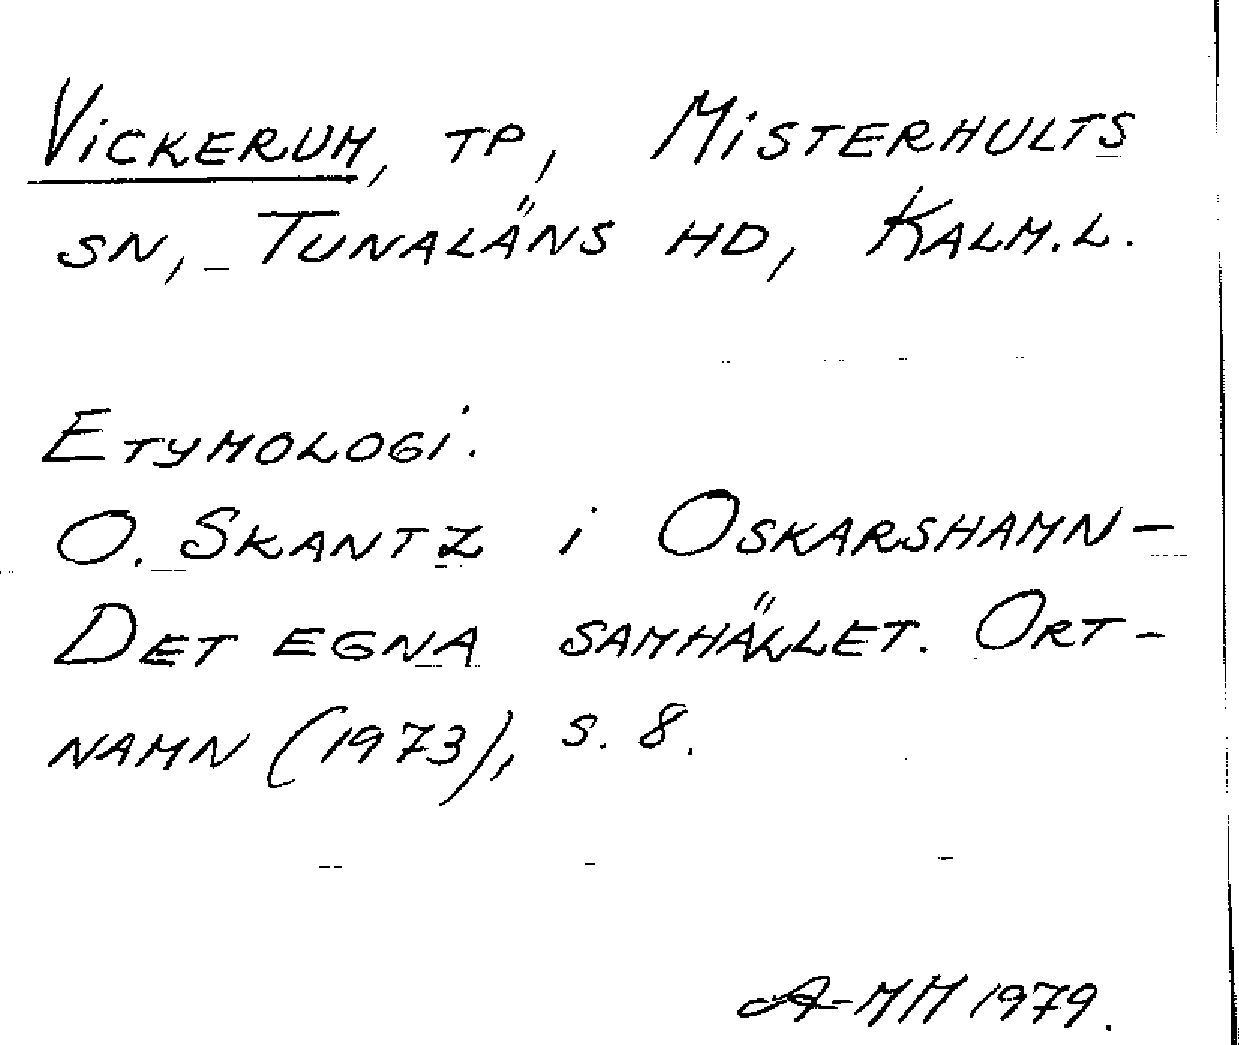 Vickerum, tp, Misterhults
sn, Tunaläns hd, Kalm.l.
Etymologi.
O. Skantz i Oskarshamn-
Det egna samhället. Ort-
namn (1973), s. 8.
A-MM 1979.